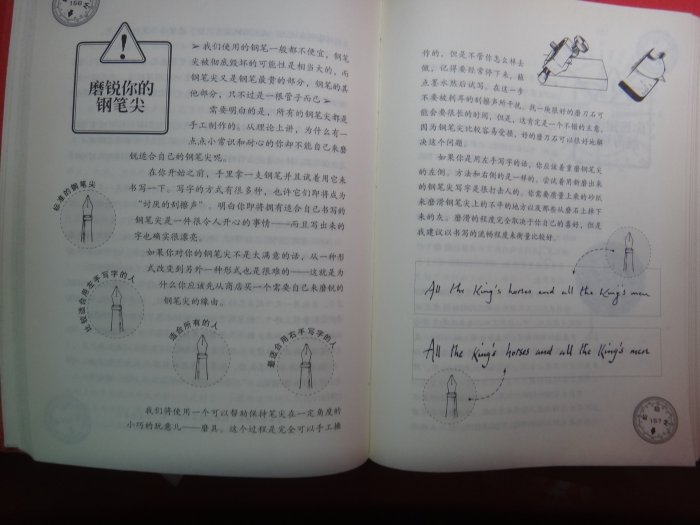 156
磨锐你的
钢笔尖
➢ 我们使用的钢笔一般都不便宜,钢笔
尖被彻底毁坏的可能性是相当大的,而
钢笔尖又是钢笔最贵的部分,钢笔的其
他部分,只不过是一根管子而已➢
需要明白的是,所有的钢笔尖都是
手工制作的。从理论上讲,为什么有一
点点小常识和耐心的你却不能自己来磨
锐适合自己的钢笔尖呢。
在你开始之前,手里拿一支钢笔并且试着用它来
书写一下。写字的方式有很多种,也许它们即将成为
“讨厌的刮擦声”。明白你即将拥有适合自己书写的
钢笔尖是一件很令人开心的事情——而且写出来的
字也确实很漂亮。
如果你对你的钢笔尖不是太满意的话,从一种形
式改变到另外一种形式也是很难的——这就是为
什么你应该先从商店买一个需要自己来磨锐的
钢笔尖的缘由。
标准的钢笔尖
比较适合用左手写字的人
适合所有的人
最适合用右手写字的人
我们将使用一个可以帮助保持笔尖在一定角度的
小巧的玩意儿——磨具。这个过程是完全可以手工操
作的,但是不管你怎么样去
做,记得要经常停下来,蘸
点墨水然后试写。在这一步
不要被刺耳的刮擦声所干扰。找一块很好的磨刀石可
能会要很长的时间,但是,这肯定是一个不错的主意,
因为钢笔尖比较容易受损,好的磨刀石可以很好地解
决这个问题。
如果你是用左手写字的话,你应该着重磨钢笔尖
的左侧。方法和右侧的是一样的。尝试着用新磨出来
的钢笔尖写字是很打击人的。你需要质量上乘的砂纸
来磨滑钢笔尖上的不平的地方以及那些从磨石上掉下
来的灰。磨滑的程度完全取决于你自己的喜好,但是
我建议以书写的流畅程度来衡量比较好。
All the King's horses and all the King's men
All the King's horses and all the King's men
157